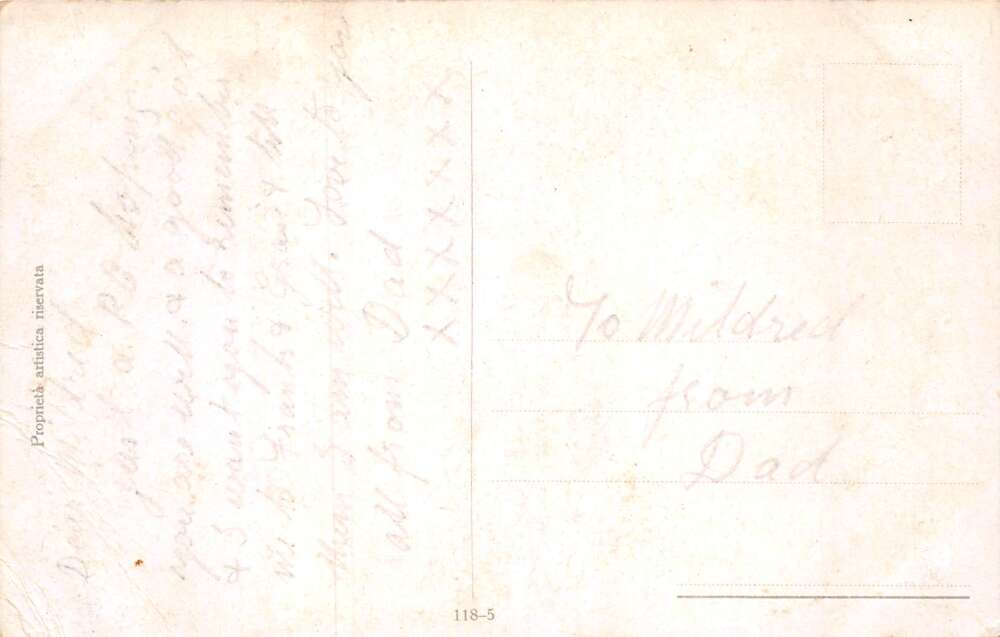 Proprietà artistica riservata
Dear
just a P.C. hoping
you are well & a good girl
& I want you to remember
me to Grandma & tell
them I am well. Love to you
all from Dad
X X X X X X
118-5
To Mildred
from
Dad